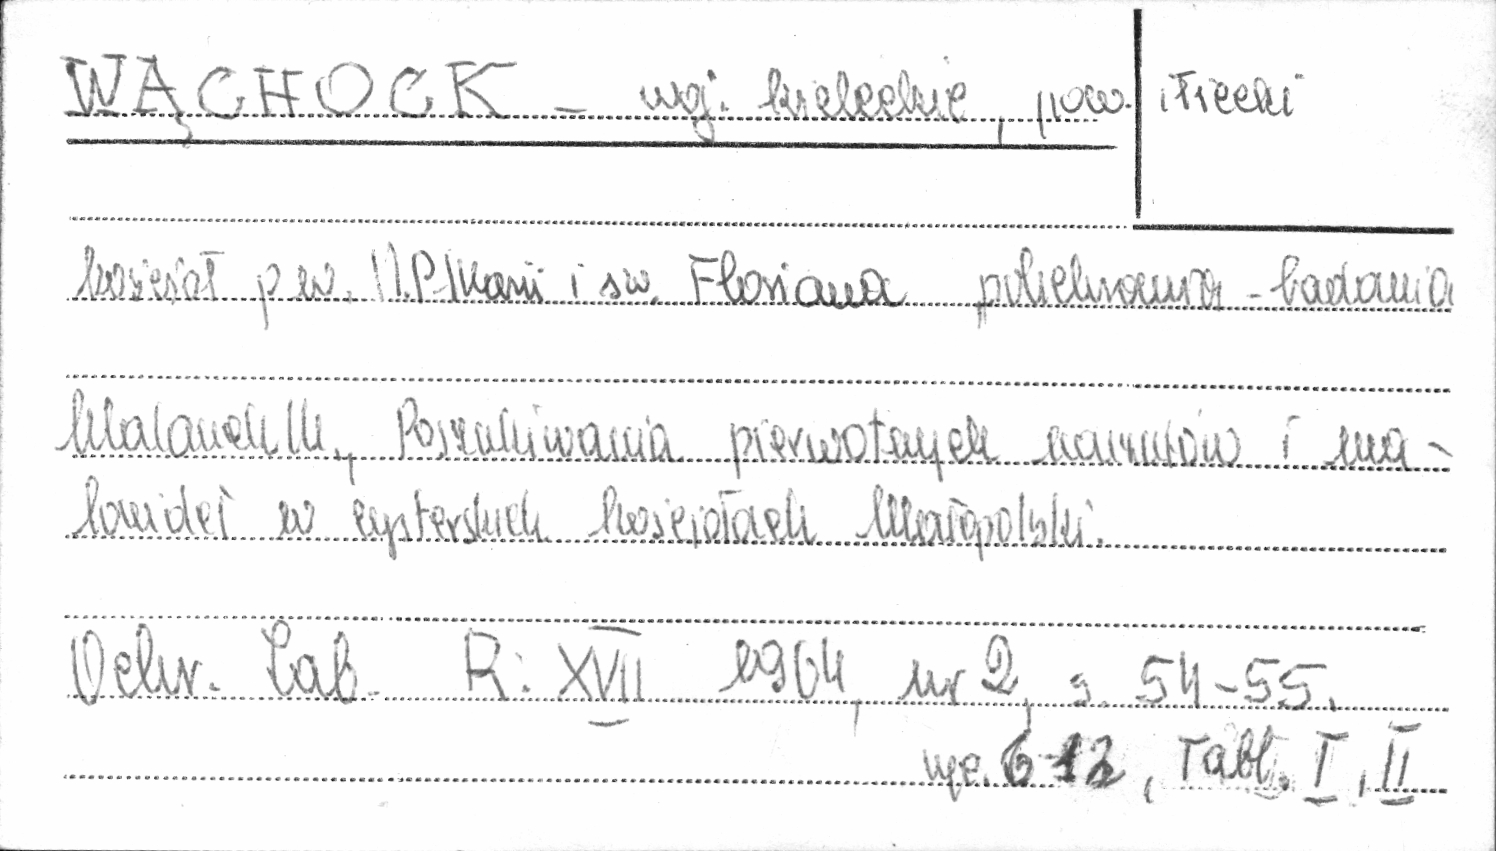 WĄCHOCK - woj. kieleckie, pow. iłżecki
kościół p.w. N.P.Marii i św. Floriana polichromia - badania
Poszukiwania pierwotnych narzutów i ma-
lowideł w cysterskich kościołach Małopolski.
Ochr. Zab. R: XVII 1964, nr 2, s. 54-55.
ryc. 6-12, Tabl. I, II